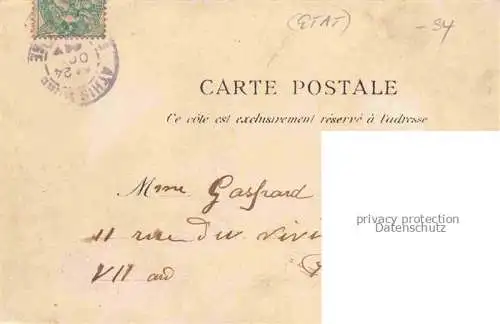 (ETAT)
-94
CARTE POSTALE
Ce côté est exclusivement réservé à l'adresse
Mme Gaspard
11 rue du
VII ard
24
OCT
privacy protection
Datenschutz